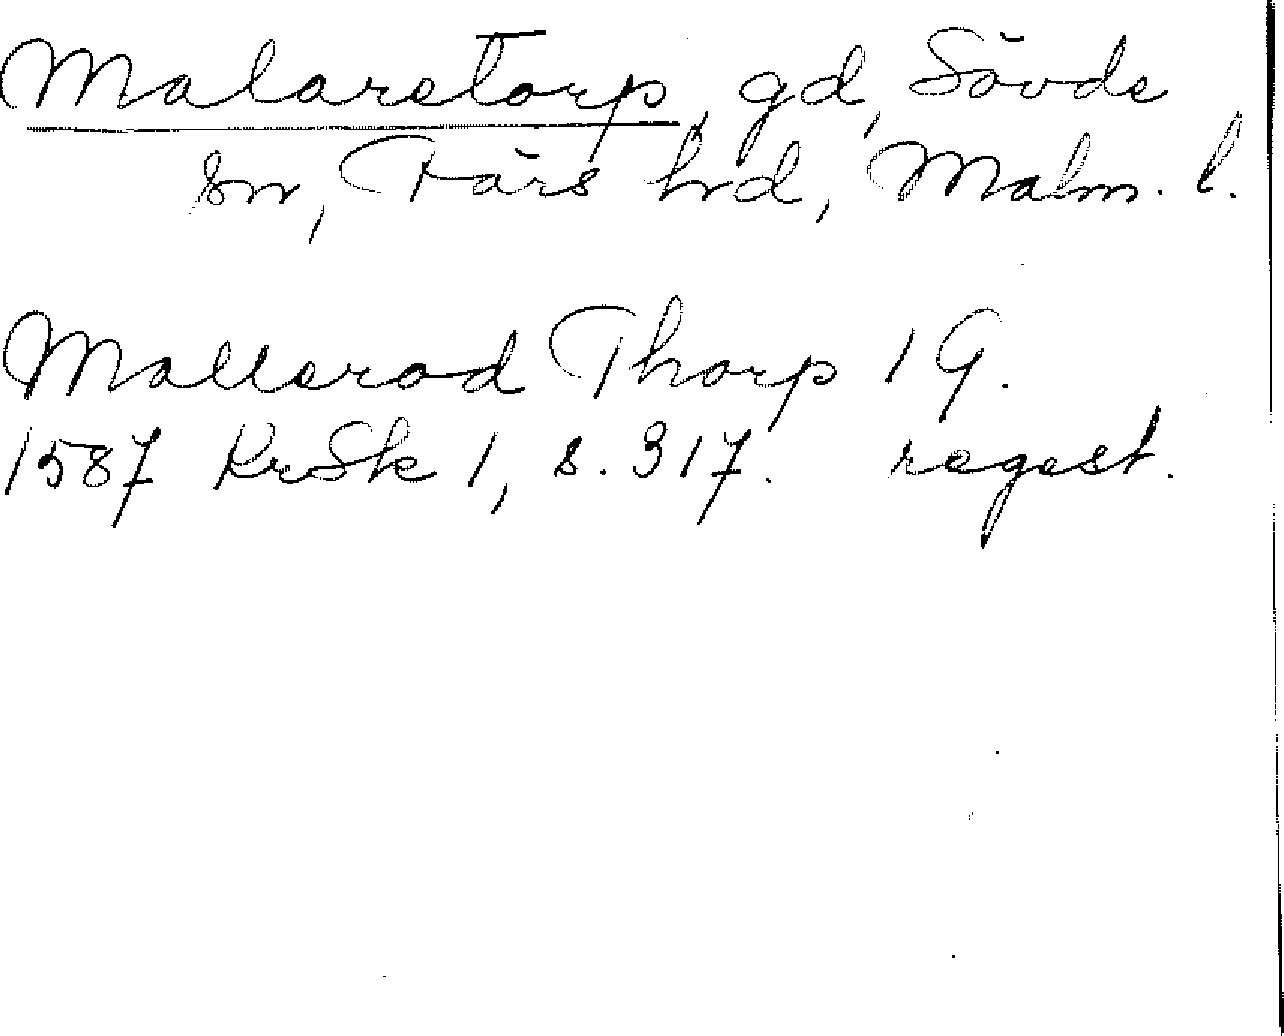 Malaretorp, gd, Sövde
sn, Färs hrd, Malm. l.
Mallerod Thorp 1 G.
1587 KrSk 1, s. 317. regest.